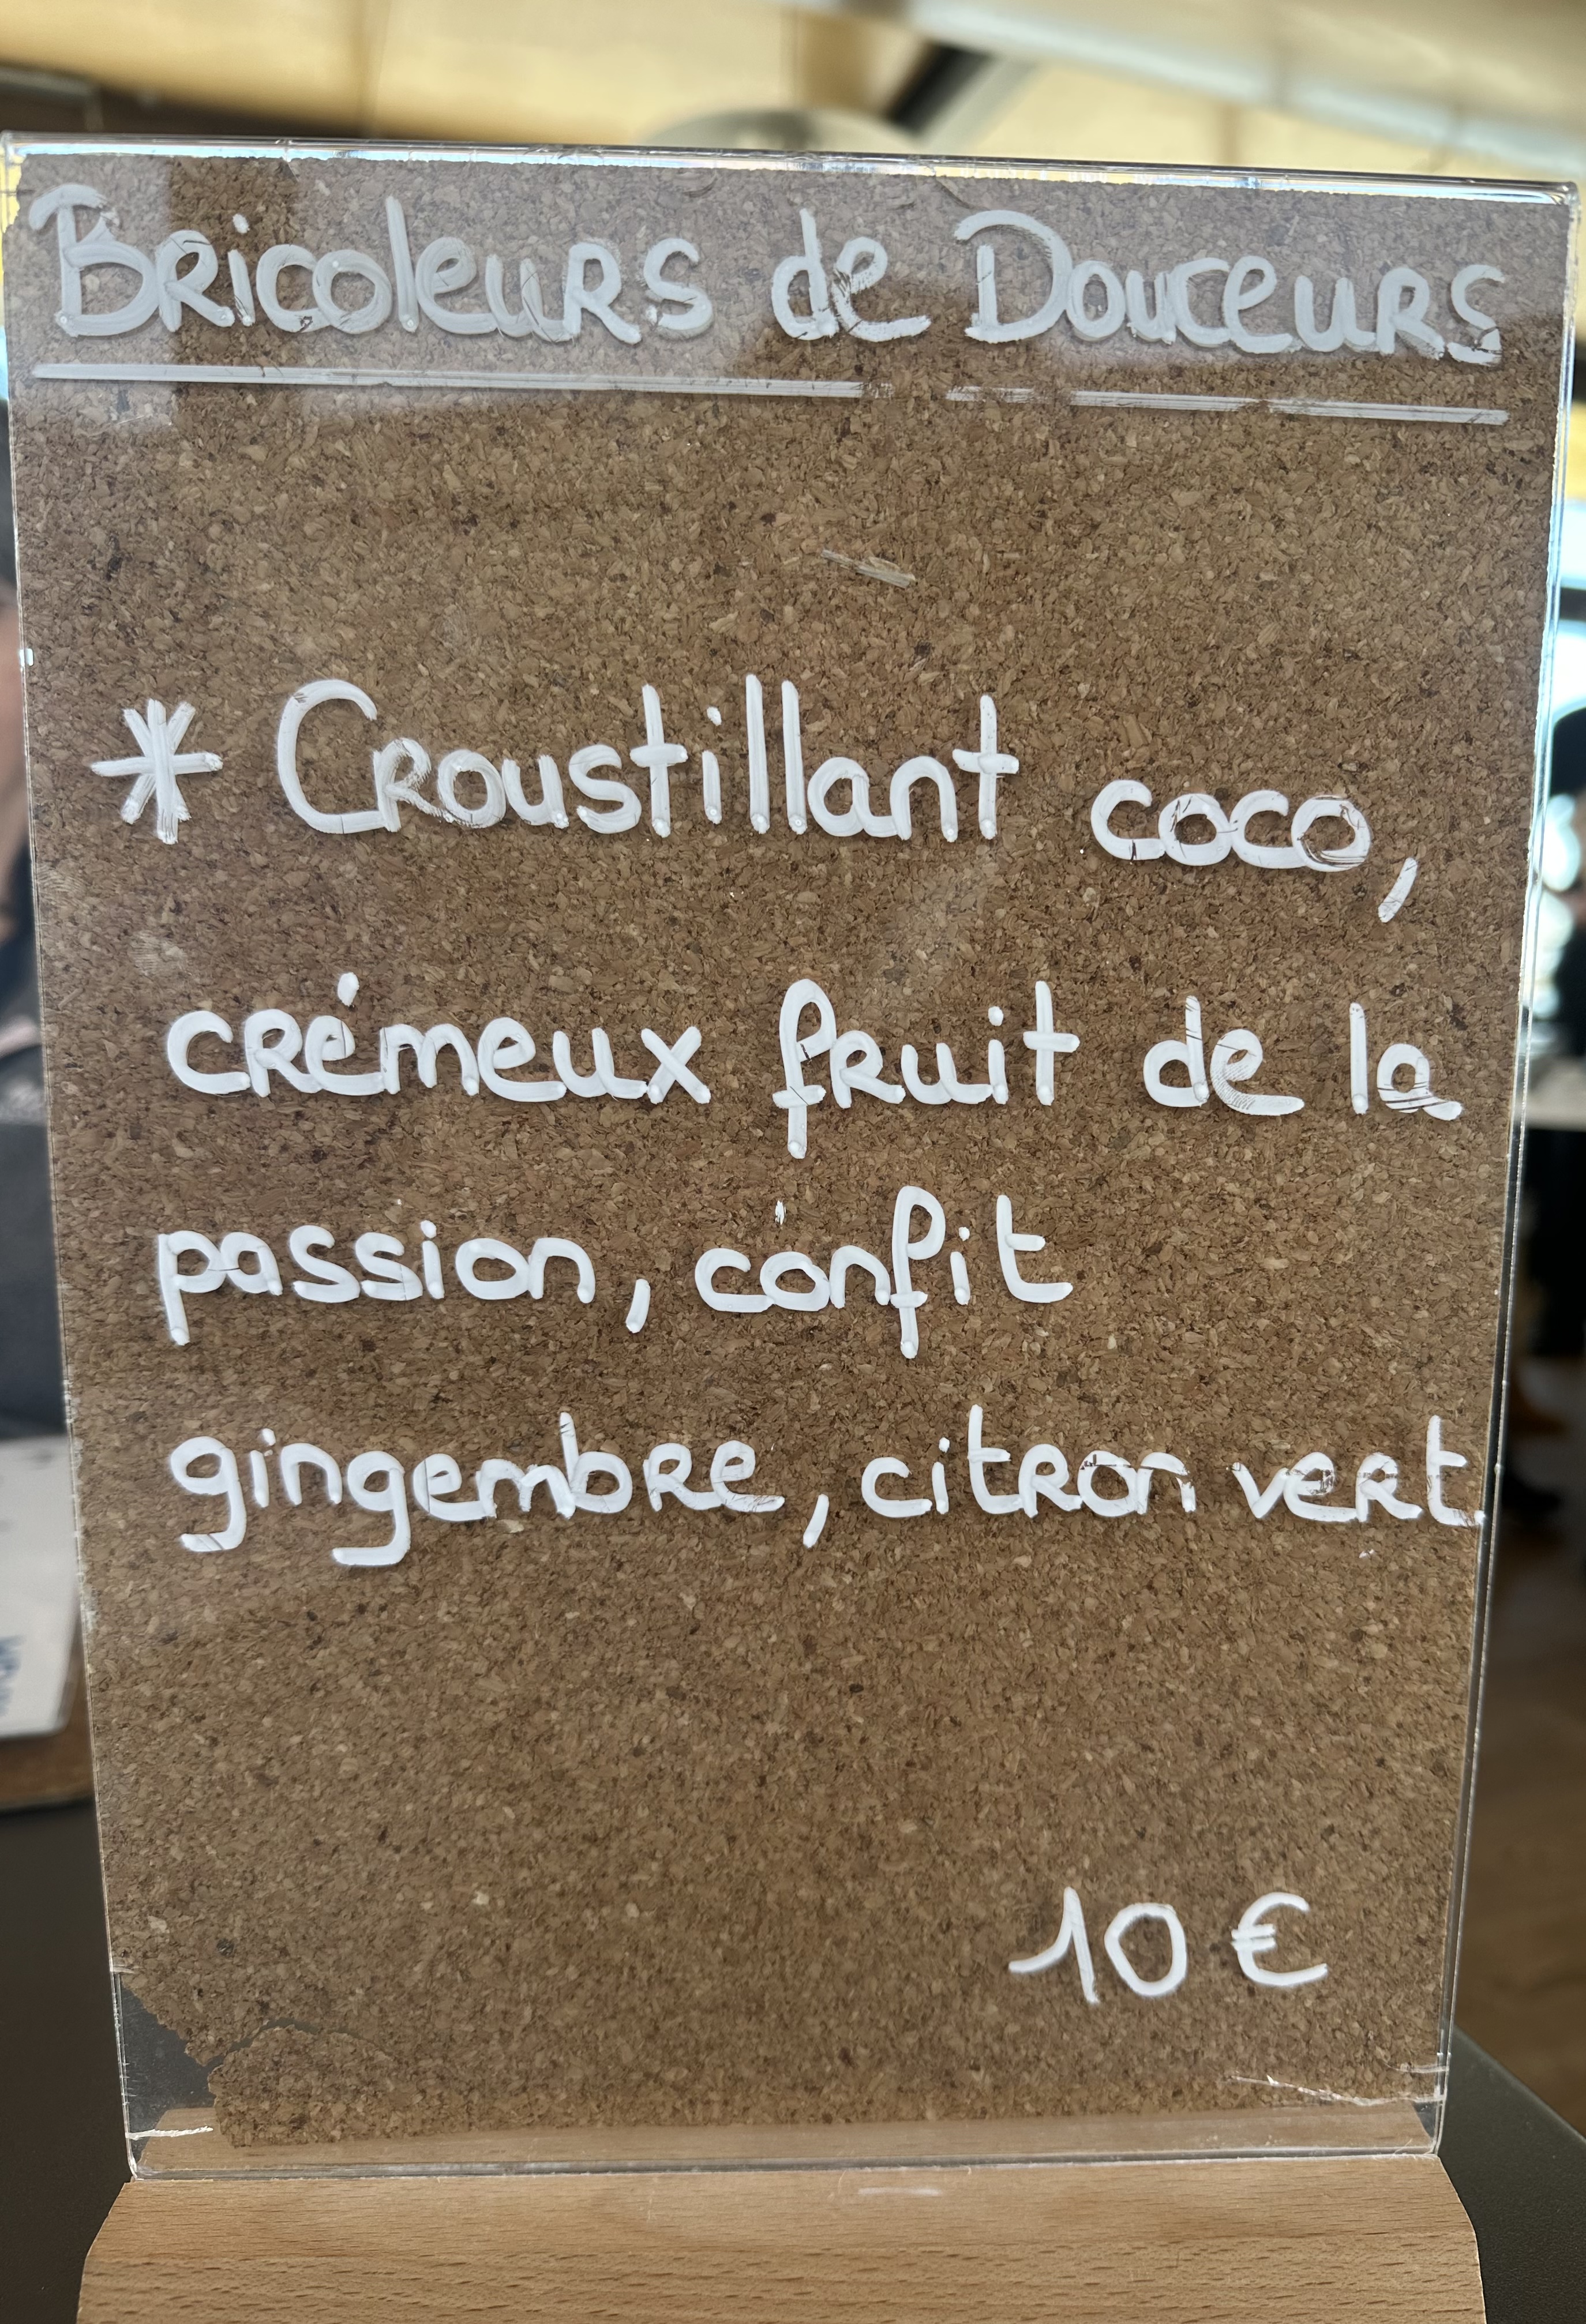 Bricoleurs de Douceurs
* Croustillant coco,
crémeux fruit de la
passion, confit
gingembre, citron vert
10 €